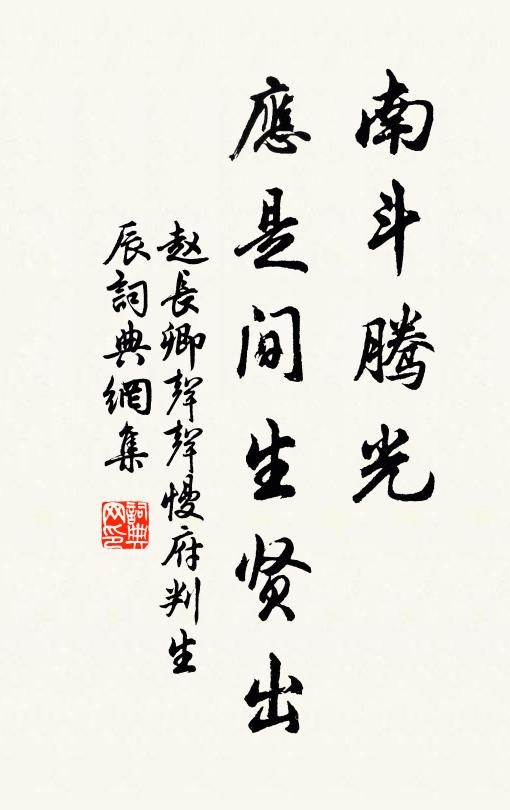 南斗腾光
應是间生贤出
赵長卿聲聲慢府判生
辰詞典網集
詞典
网印